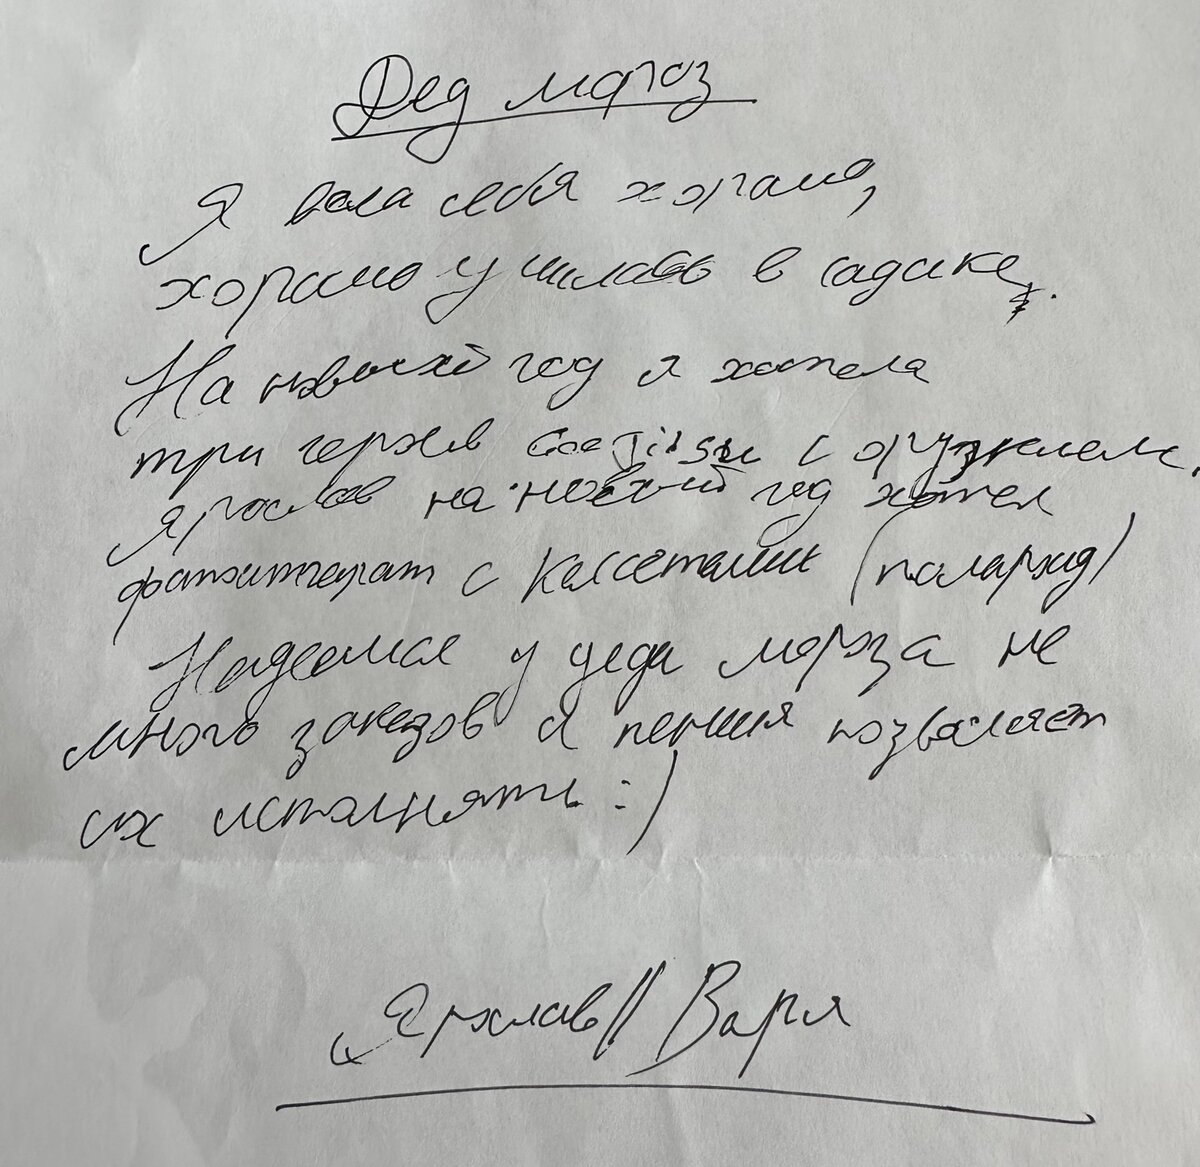 Дед мороз
Я вела себя хорашо,
хорашо училась в садике.
На новый год я хотела
три героев GooJitsu с оружием.
Ярослав на новый год хотел
фотоаппарат с кассетами (палароид)
Надеемся у деда мороза не
много заказов и пенсия позваляет
их исполнять :)
Ярослав // Варя